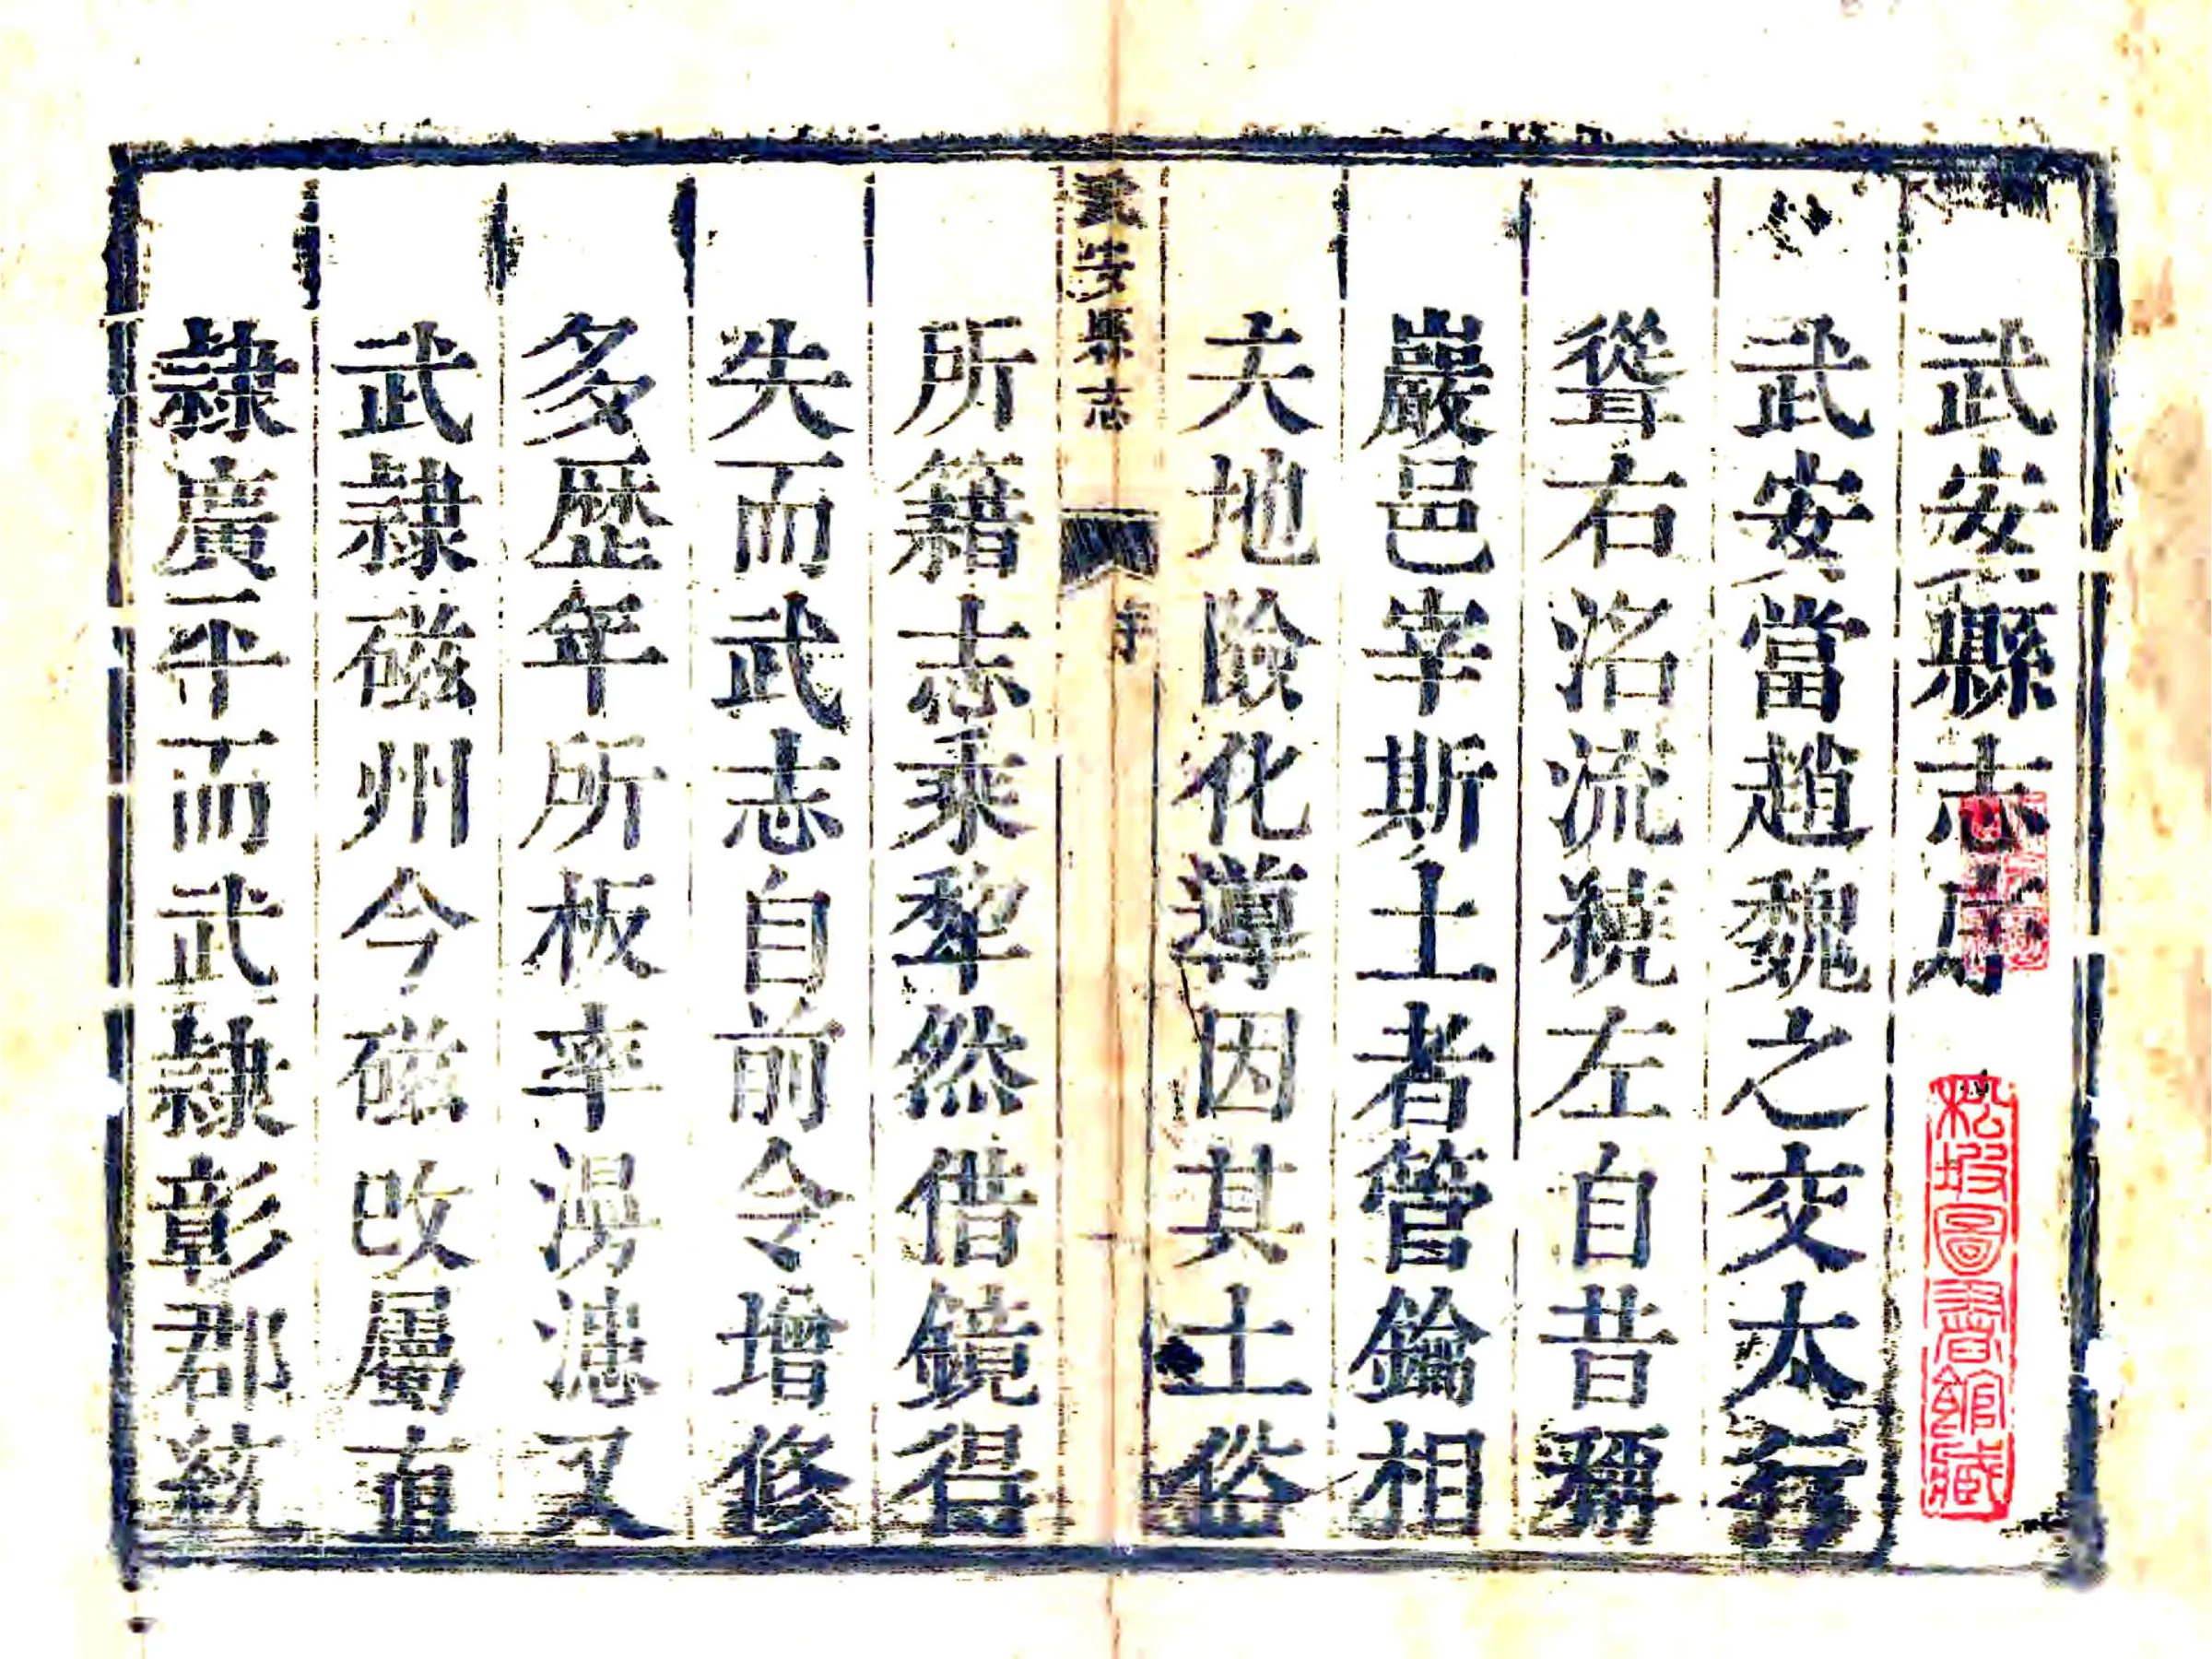 武安縣志序
武安當趙魏之交太行
聳右洺流繞左自昔稱
巖邑宰斯土者管鑰相
夫地險化導因其土俗
武安縣志
序
所籍志乘犂然借鏡得
失而武志自前令增修
多歷年所板率漫漶又
武隸磁州今磁改屬直
隸廣平而武隸彰郡統
松坡圖書館藏